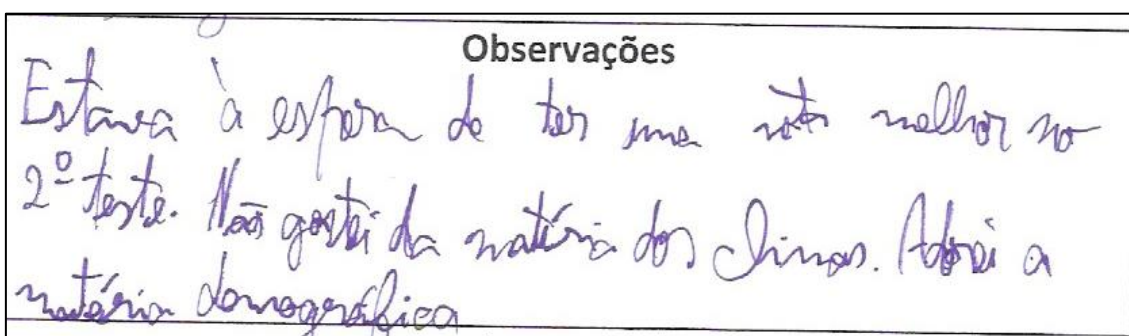 Observações
Estava à espera de ter uma nota melhor no
2º teste. Não gostei da matéria dos climas. Adorei a
matéria demográfica